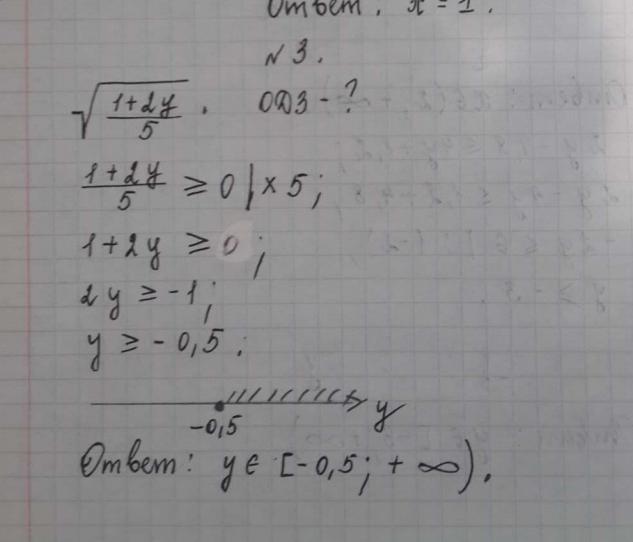 Ответ: x = 1.
N 3.
√((1+2y)/5) . ОДЗ - ?
(1+2y)/5 ≥ 0 | × 5;
1 + 2y ≥ 0;
2y ≥ -1;
y ≥ - 0,5.
-0,5 y
Ответ: y ∈ [-0,5; + ∞).